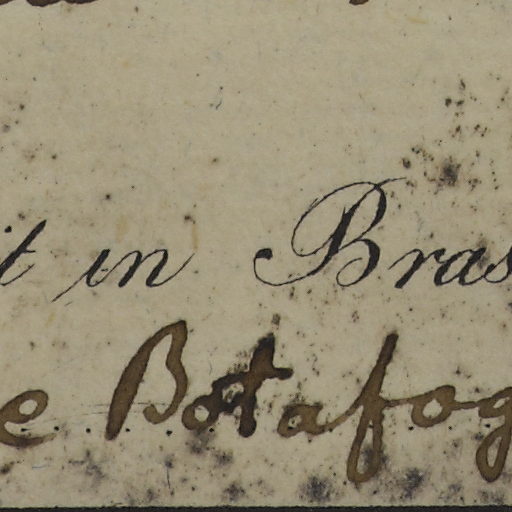 it in Bras
e Botafog